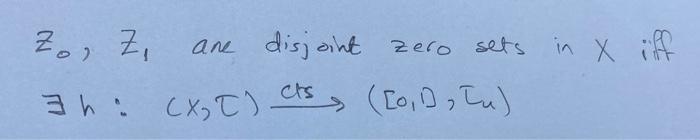 Z₀, Z₁ are disjoint zero sets in X iff
∃ h : (X, τ) cts⟶ ([0,1], τᵤ)